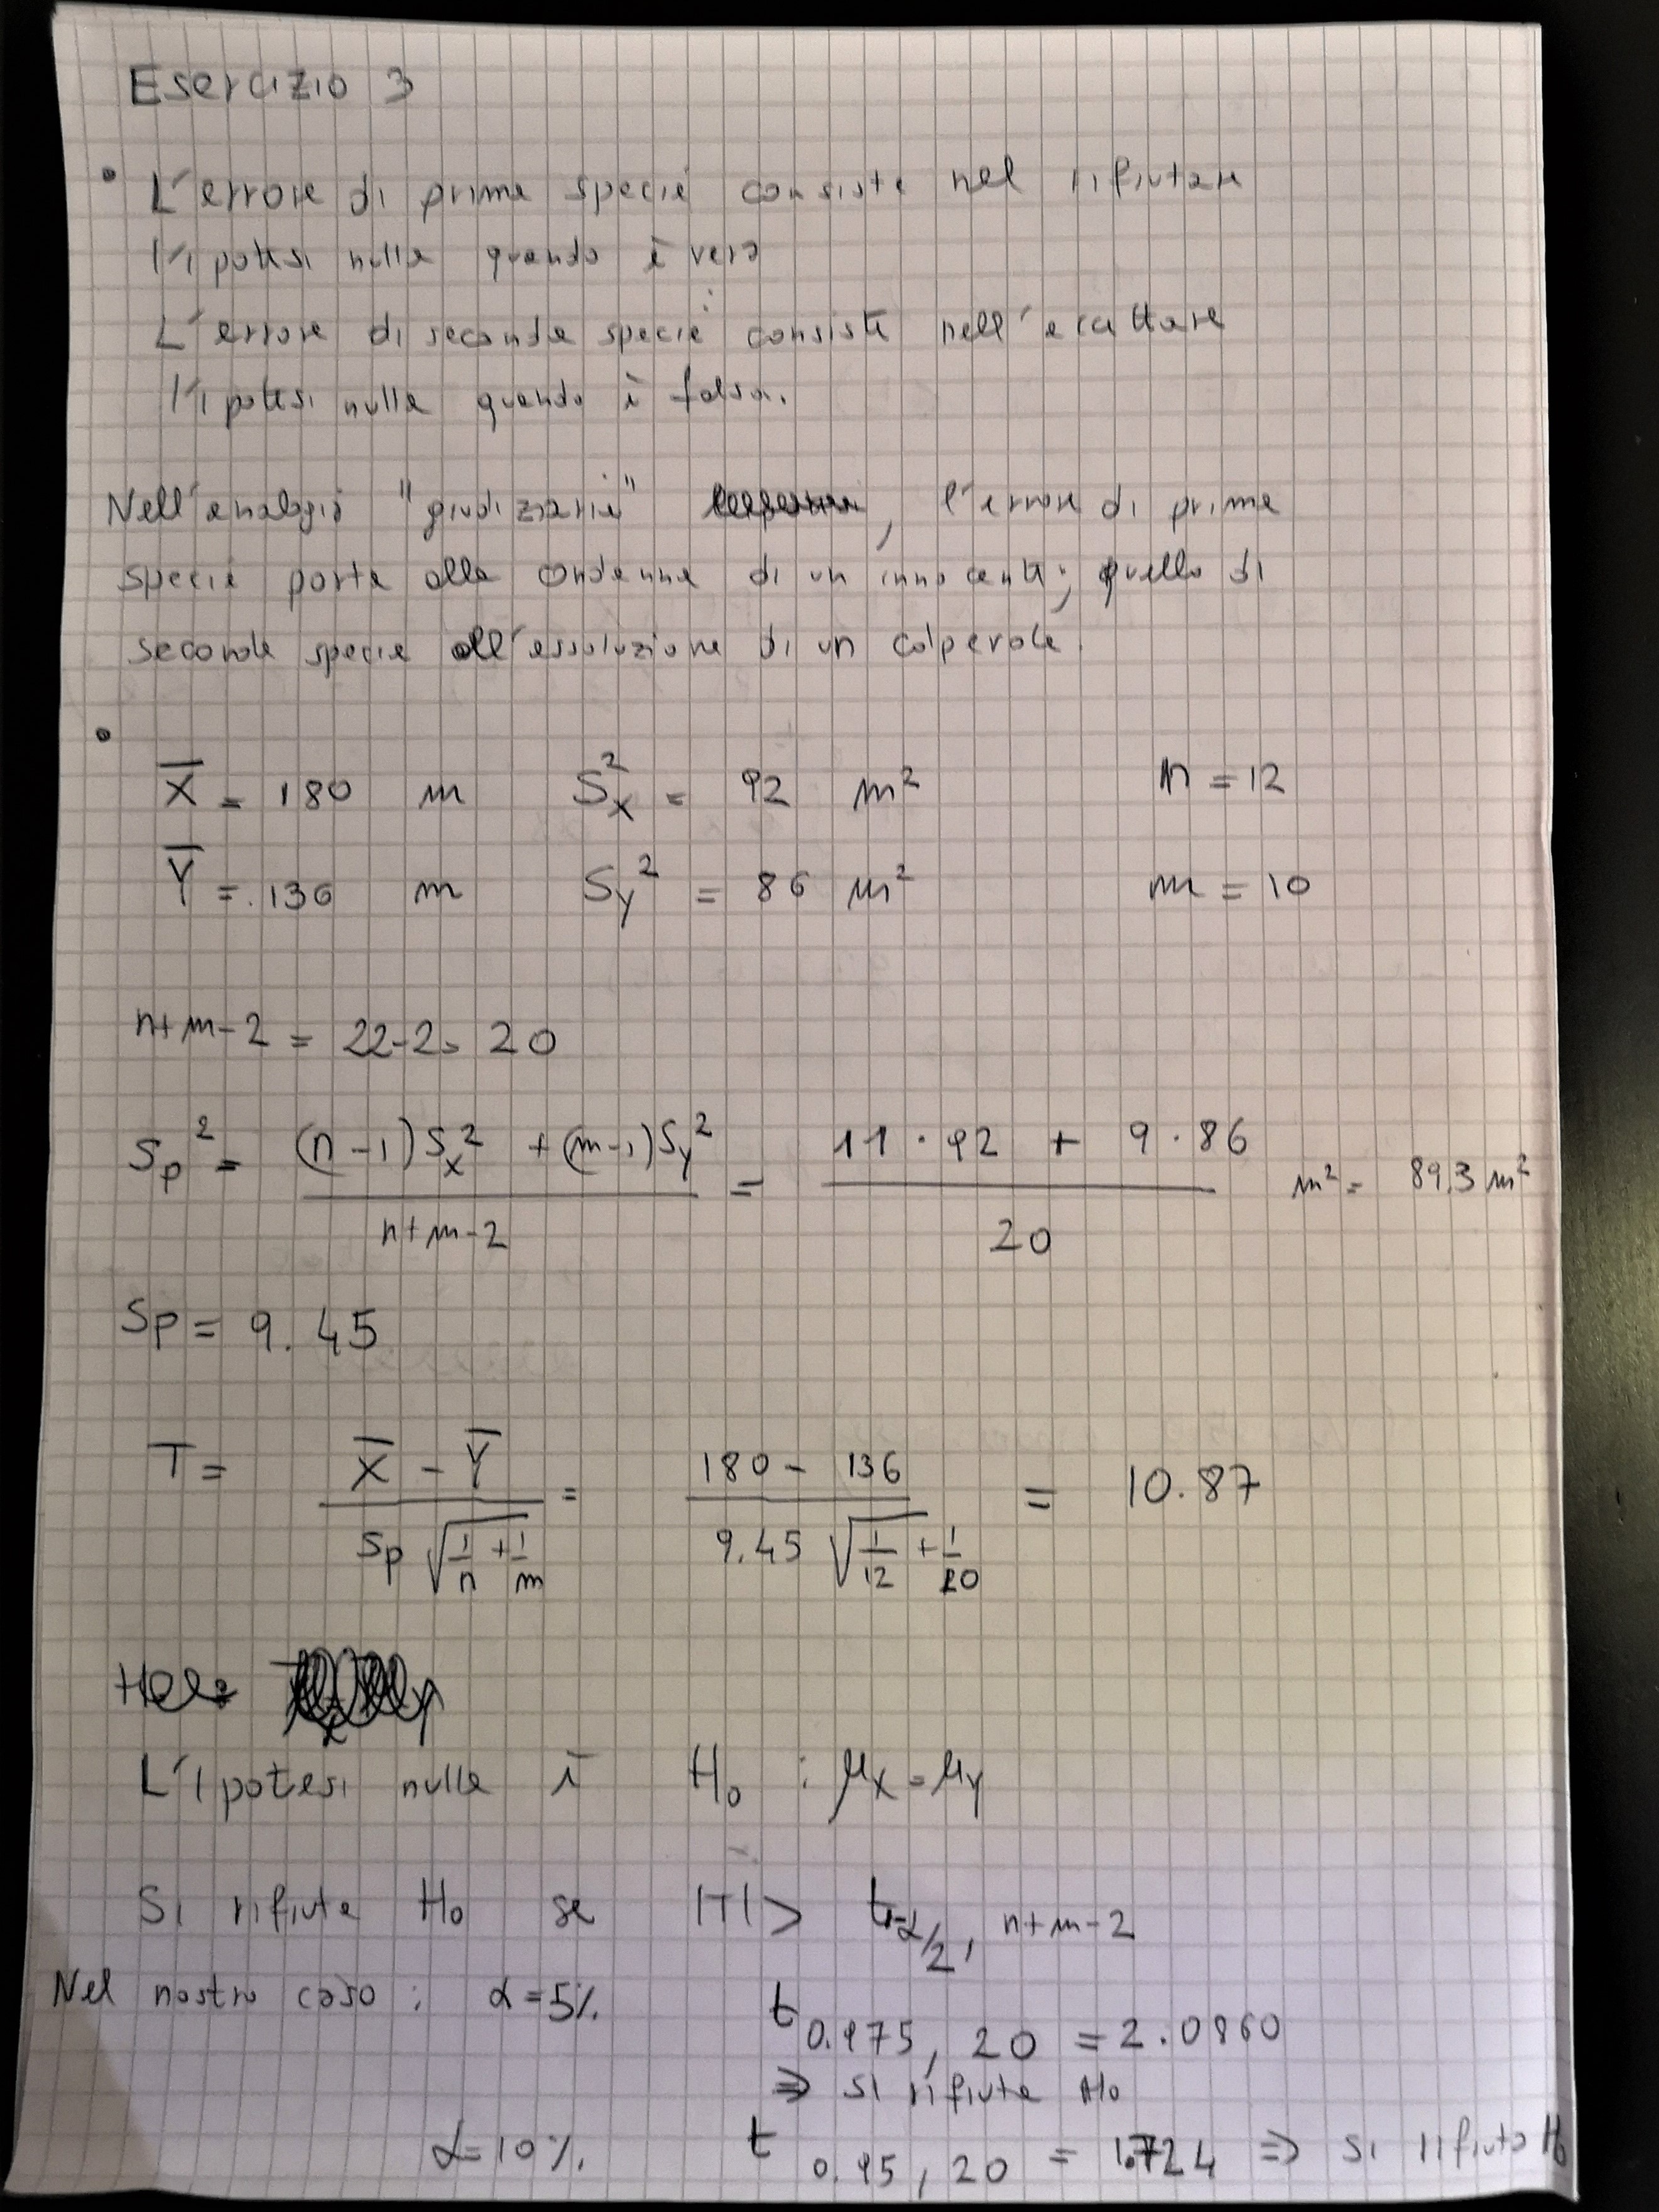 Esercizio 3
• L'errore di prima specie consiste nel rifiutare
l'ipotesi nulla quando è vera
L'errore di seconda specie consiste nell'accettare
l'ipotesi nulla quando è falsa.
Nell'analogia "giudiziaria" , l'errore di prima
specie porta alla condanna di un innocente; quello di
seconda specie all'assoluzione di un colpevole.
•
X̄ = 180 m S_x^2 = 92 m² n = 12
Ȳ = 136 m S_y^2 = 86 m² m = 10
n+m-2 = 22-2 = 20
S_p^2 = ((n-1)S_x^2 + (m-1)S_y^2)/(n+m-2) = (11 · 92 + 9 · 86)/20 m² = 89.3 m²
Sp = 9.45
T = (X̄ - Ȳ)/(Sp √(1/n + 1/m)) = (180 - 136)/(9.45 √(1/12 + 1/10)) = 10.87
L'ipotesi nulla è H₀ : μ_X = μ_Y
Si rifiuta H₀ se |T| > t_{1-α/2, n+m-2}
Nel nostro caso : α = 5% t_{0.975, 20} = 2.0860
⇒ si rifiuta H₀
α = 10% t_{0.95, 20} = 1.724 ⇒ si rifiuta H₀